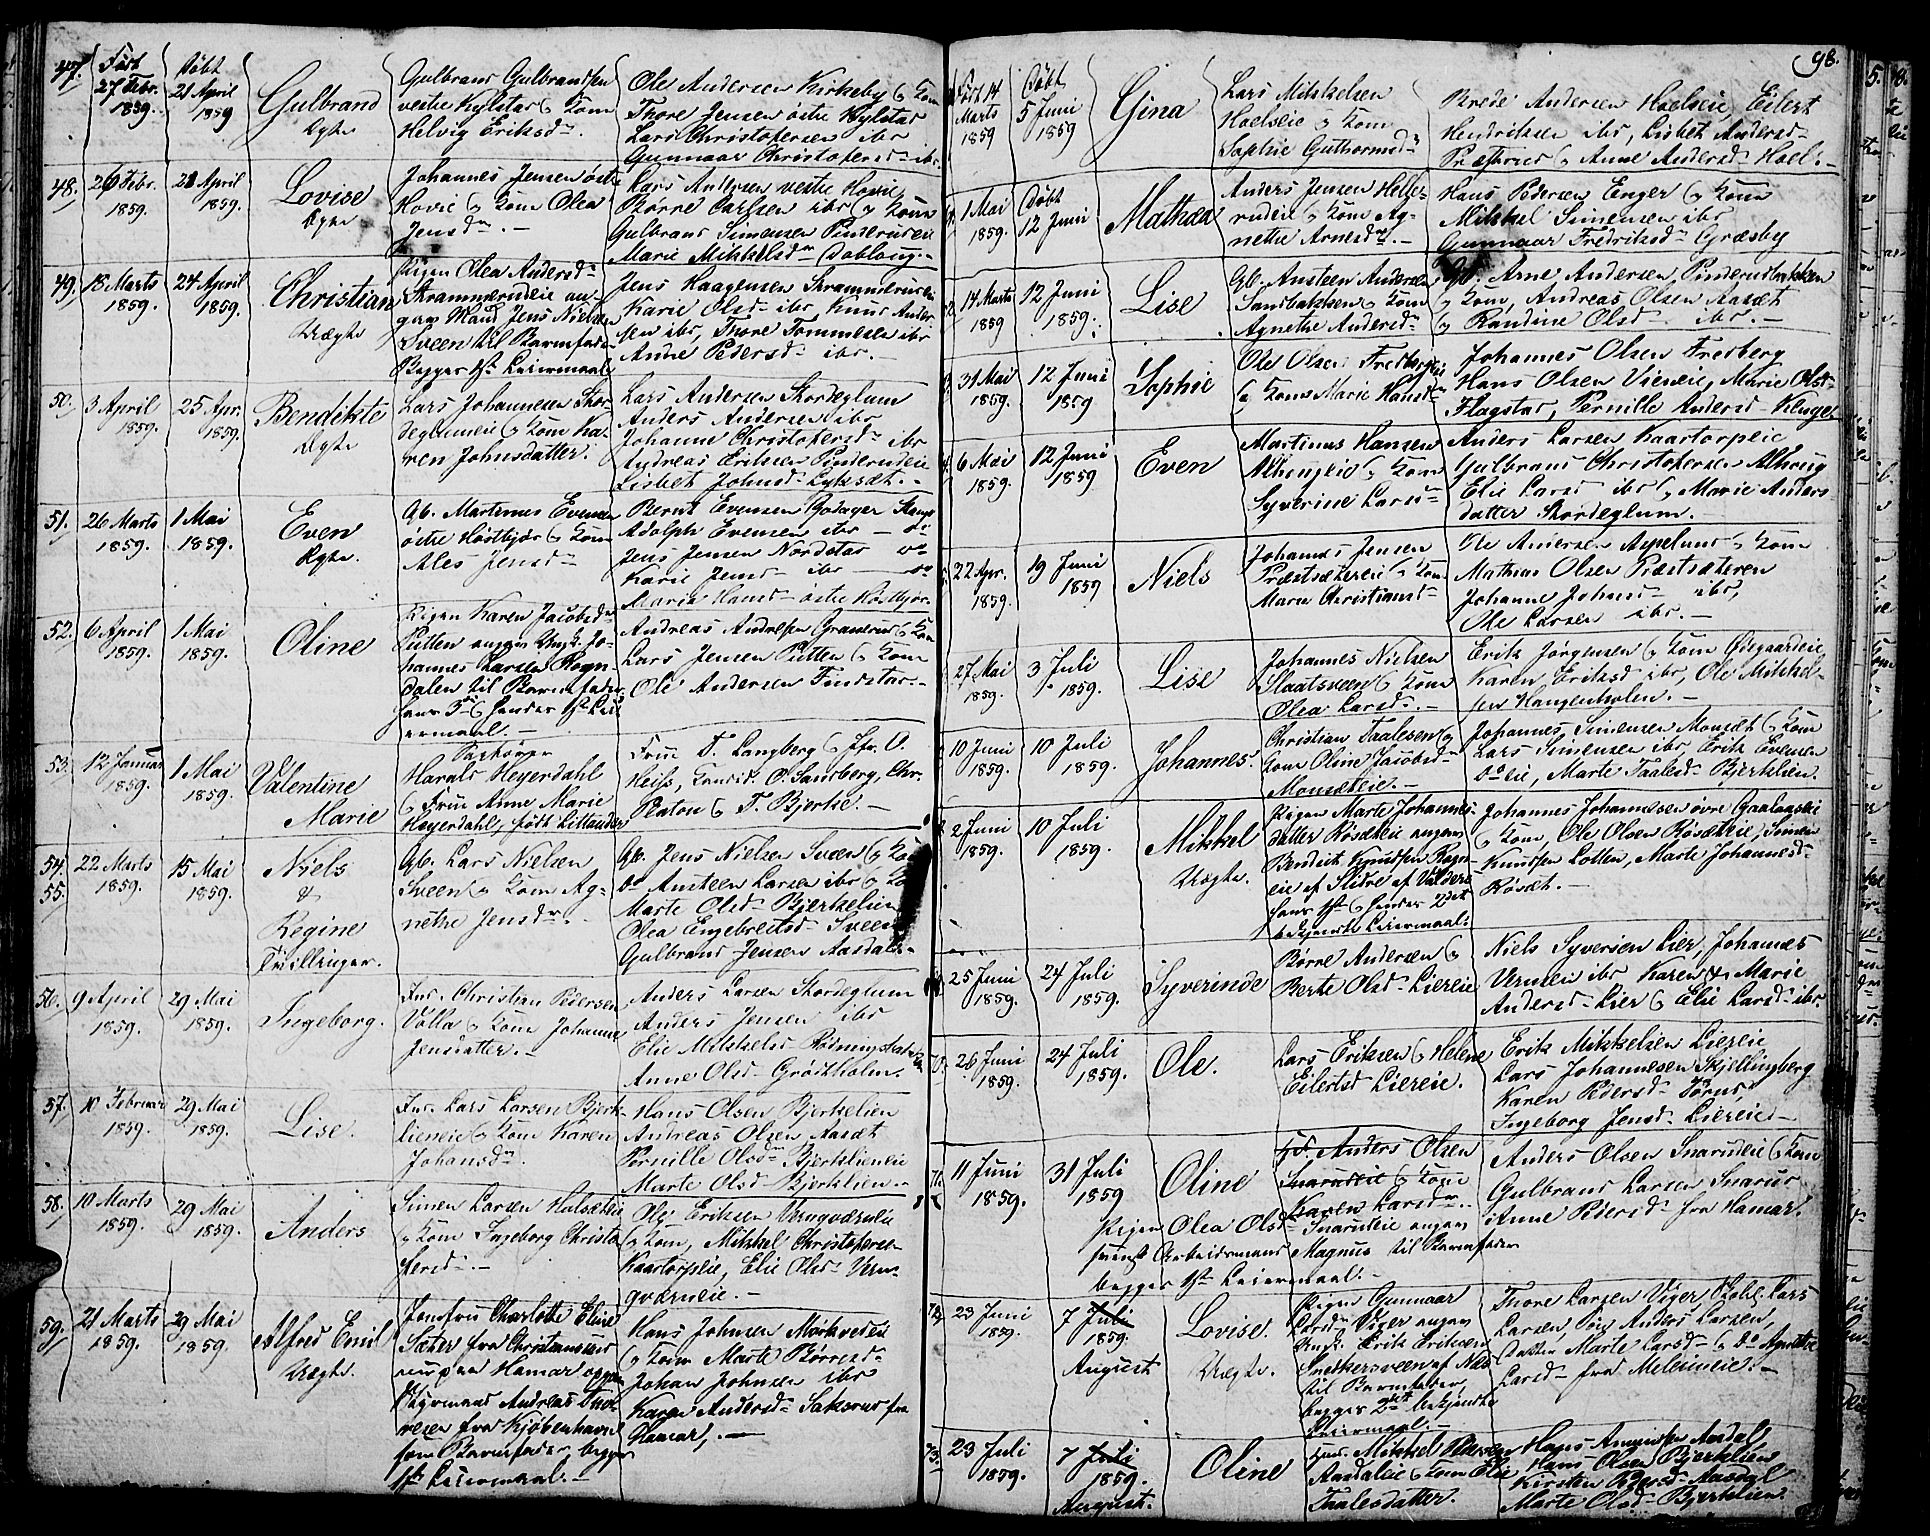 47. Født 27 Febr. 1859. Døbt 21 April 1859
Gulbrand
Ægte
Gulbrand Gulbrandsen
vestre Kylstad og Kone
Helvig Eriksd.
Ole Andersen Kirkeby og Kone
Thore Jensen østre Kylstad
Lars Christophersen ibr
Gunnaar Christophersd ibr.
48. 26 Febr. 1859. 21 April 1859.
Lovise
Ægte
Johannes Jensen østre
Hovie og Kone Olea
Jensd. -
Lars Andersen vestre Hovie
Børre Carlsen ibr og Kone
Gulbrand Simensen Pinderudeie
Marie Mikkelsd Dobloug. -
49. 18 Marts 1859. 24 April 1859.
Christian
Uægte
Pigen Olea Andersd
Strammerudeie an-
given Mand Jens Nielsen
Sveen til Barnefader
Begges 1ste Leiermaal
Jens Haagensen Strammerudeie
Karie Olsd ibr Knud Ander-
sen ibr, Thore Tommesen ibr
Anne Pedersd ibr. -
50. 3 April 1859. 25 Apr. 1859.
Bendikte
Ægte
Lars Johannesen Skor-
deglumeie og Kone Ka-
ren Johnsdatter.
Lars Andersen Skordeglum
Anders Andersen ibr
Johanne Christophersd ibr
Andreas Eriksen Pinderudeie
Lisbet Johnsd Lyksæt. -
51. 26 Marts 1859. 1 Mai 1859.
Even
Ægte.
Gb. Martinus Evensen
østre Høstbjør og Kone
Ales Jensd
Bernt Evensen Godager Stange
Adolph Evensen ibr - do
Jens Jensen Nordstad do
Karie Jensd ibr - do
Maria Hansd østre Høstbjør.
52. 6 April 1859. 1 Mai 1859.
Oline
Pigen Karen Jacobsd
Putten angav Ungk. Jo-
hannes Larsen Rogn-
dalen til Barnefader
hans 3die og hendes 1ste Lei-
ermaal. -
Andreas Andresen Granerud og Kone
Lars Jensen Putten og Kone
Ole Andersen Findstad. -
53. 12 Januar 1859. 1 Mai 1859.
Valentine
Marie
Harald Heyerdahl
og Frue Anne Marie
Heyerdahl, født Kittander
Frue T. Langberg og Jfr. O.
Heiss, O. Sandberg, Chr.
Platou og T. Bjerke. -
54. 55. 22 Marts 1859. 15 Mai 1859.
Niels
&
Regine
Tvillinger.
Gb. Lars Nielsen
Sveen og Kone Ag-
nethe Jensd.
Gb. Jens Nielsen Sveen og Kone
do Austeen Larsen ibr og Kone
Marte Olsd Bjerkelien
Olea Engebretsd Sveen
Gulbrand Jensen Aasdal. -
56. 9 April 1859. 29 Mai 1859.
Ingeborg.
Ind. Christian Pedersen
Volla og Kone Johanne
Jensdatter. -
Anders Larsen Skordeglum
Anders Jensen ibr
Elie Mikkelsd Rødningsbakken
Anne Olsd Grødtholm.
57. 10 Februar 1859. 29 Mai 1859.
Lise.
Ind. Lars Larsen Bjerk-
lieneie og Kone Karen
Johansd.
Hans Olsen Bjerkelien
Andreas Olsen Aasæt
Pernille Olsd Bjerklieneie
Marte Olsd Bjerklien. -
58. 10 Marts 1859. 29 Mai 1859.
Anders
Simen Larsen Holsæteie
og Kone Ingeborg Christo-
fersd. -
Ole Eriksen Verngværneie
og Kone, Mikkel Christophersen
Kaartorpeie, Elie Olsd Vern-
gværneie. -
59. 21 Marts 1859. 29 Mai 1859.
Alfred Emil
Uægte.
Jomfru Charlotte Eline
Sæter fra Christianssund
nu paa Hamar opgav
Styrmand Andreas
fra Kjøbenhavn
som Barnefader, begges
1ste Leiermaal. -
Hans Johnsen Mørkvedeie
og Kone Marte Børresd
Johan Johnsen ibr
Karen Andersd Saksrud fra
Hamar, -
98.
Født 14 Marts 1859 Døbt 5 Juni 1859
Gina
Lars Mikkelsen
Hoelseie og Kone
Sophie Guthormsd
Brede Andersen Hoelseie, Eilert
Hendriksen ibr, Lisbet Andersd
Præsterud og Anne Andersd Hoel. -
1 Mai 1859. Døbt 12 Juni
Mathea
Anders Jensen Helle-
rudeie og Kone Ag-
nethe Arnesd. -
Hans Pedersen Enger og Kone
Mikkel Simensen ibr
Gunnaar Fredriksd Græsby
14 Marts 1859 12 Juni 1859.
Lise
Gb. Austeen Andersen
Sandbakken og Kone
Agnethe Andersd
Gb. Arne Andersen, Pinderudbakken
og Kone, Andreas Olsen Aasæt
og Randine Olsd ibr. -
31 Mai 1859. 12 Juni 1859
Sophie
Ole Olsen Fredbergeie
og Kone Marie Hansd
Johannes Olsen Fredberg
Hans Olsen Vieneie, Marie Olsd
Flagstad, Pernille Andersd Kluge.
6 Mai 1859. 12 Juni 1859
Even
Martinus Hansen
Alhaugeie og Kone
Syverine Larsd
Anders Larsen Kaartorpeie
Gulbrand Christophersen Alhaug
Elie Larsd ibr og Marie Anders-
datter Skordeglum. -
22 Apr. 1859. 19 Juni 1859
Niels
Johannes Jensen
Præstsætereie og Kone
Maren Christiansd
Ole Andersen Aspelund og Kone
Mathias Olsen Præstsæteren
Johanne Johansd ibr,
Ole Larsen ibr. -
27 Mai 1859. 3 Juli 1859.
Lise
Johannes Nielsen
Slaatsveen og Kone
Olea Larsd. -
Erik Jørgensen og Kone Ødegaardeie,
Karen Eriksd ibr, Ole Mikkel-
sen Haugenholen. -
10 Juni 1859. 10 Juli 1859.
Johannes.
Christian Taalesen og
Kone Oline Jacobsd
Monsæteie. -
Johannes Simensen Monsæt og Kone
Lars Simensen ibr, Erik Evensen
do eie, Marte Taalesd Bjerklien.
2 Juni 1859. 10 Juli 1859.
Mikkel
Uægte.
Pigen Marte Johannes-
datter Røsæteie angav
Bendiet Knudsen Rogn-
eie af Slidre af Valders
hans 1ste og hendes 2det
bekjendte Leiermaal.
Johannes Johannesen øvre Gaalaaseie
og Kone, Ole Olsen Røsæteie, Simen
Knudsen Lotten, Marte Johannesd
Røsæt. -
25 Juni 1859. 24 Juli 1859.
Syverinde
Børre Andersen og
Berte Olsd Liereie
Niels Syversen Lier, Johannes
Vermen ibr Karen & Marie
Andersd Lier og Elie Larsd ibr.
70. 26 Juni 1859. 24 Juli 1859.
Ole.
Lars Eriksen og Helene
Eilertsd Liereie.
Erik Mikkelsen Liereie
Lars Johannesen Skjellingberg
Karen Pedersd Tørud,
Ingeborg Jensd Liereie -
71. 11 Juni 1859. 31 Juli 1859
Oline
Anders Olsen
Snarudeie og Kone
Karen Larsd.
Pigen Olea Olsd Snarudeie angav
Arbeidsmand Magnus til Barnefader
begges 1ste Leiermaal. -
Anders Olsen Snarudeie og Kone
Gulbrand Larsen Snarud
Anne Pedersd fra Hamar.
72. 23 Juni 1859. 7 Juli 1859. August
Lovise.
Uægte.
Pigen Gunnaar
Larsd Viger angav
Ungk. Erik Eriksen
Snekkersveen af Næs
til Barnefader,
begges 2det bekjendte
Leiermaal. -
Thore Larsen Viger Lars
Larsen, Anders Larsen,
Datter Marte Larsd og do Agnethe
Larsd fra Melumeie. -
73. 23 Juli 1859. 7 Juli 1859. August.
Oline
Ind. Mikkel Pedersen
Aasdaleie og Kone Elie
Taalesdatter.
Hans Amundsen Aasdal,
Hans Olsen Bjerklien
Kirsten Pedersd Aasdal
Marte Olsd Bjerklien.